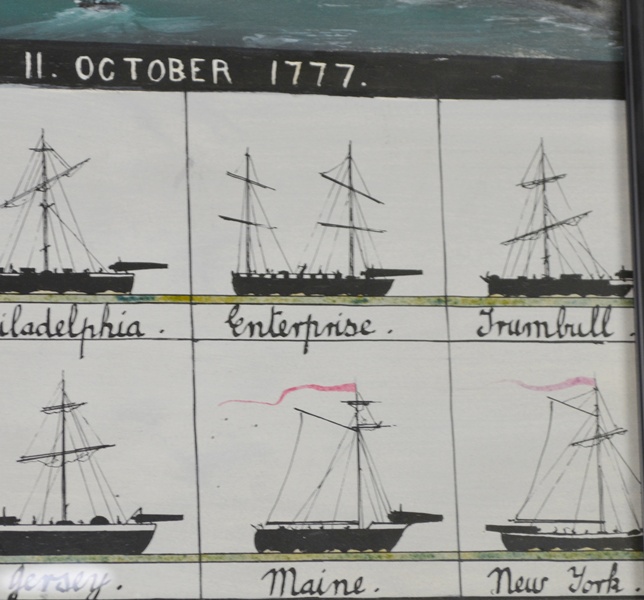 11. OCTOBER 1777.
iladelphia. Enterprise. Trumbull.
Jersey. Maine. New York.